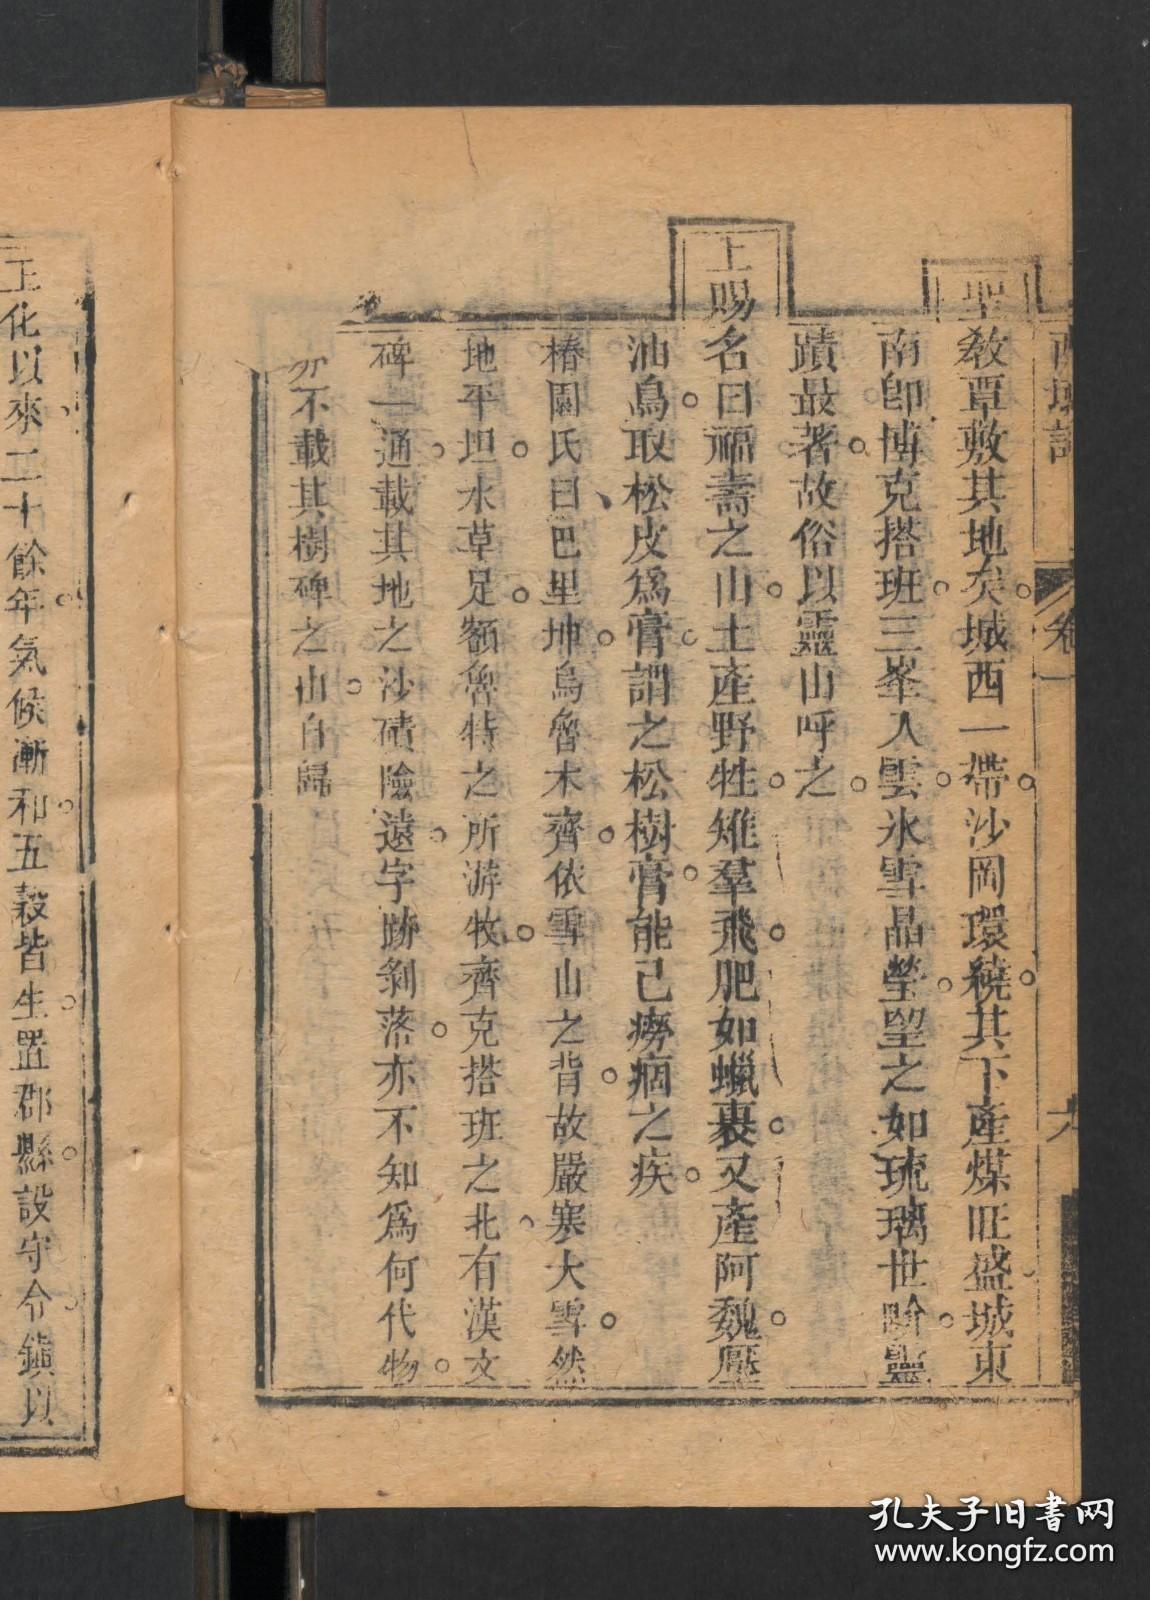 西域記
卷一
六
聖教覃敷其地矣城西一帶沙岡環繞其下產煤旺盛城東
南卽博克搭班三峯入雲氷雪晶瑩望之如琉璃世階靈
蹟最著故俗以靈山呼之
上賜名曰福壽之山土產野牲雉羣飛肥如蠟裹又產阿魏壓
油鳥取松皮爲膏謂之松樹膏能已癆痼之疾
椿園氏曰巴里坤烏魯木齊依雪山之背故嚴寒大雪然
地平坦水草足額魯特之所游牧齊克搭班之北有漢文
碑一通載其地之沙磧險遠字跡剝落亦不知爲何代物
不載其樹碑之由自歸
王化以來二十餘年氣候漸和五穀皆生置郡縣設守令鎭以
孔夫子旧書网
www.kongfz.com